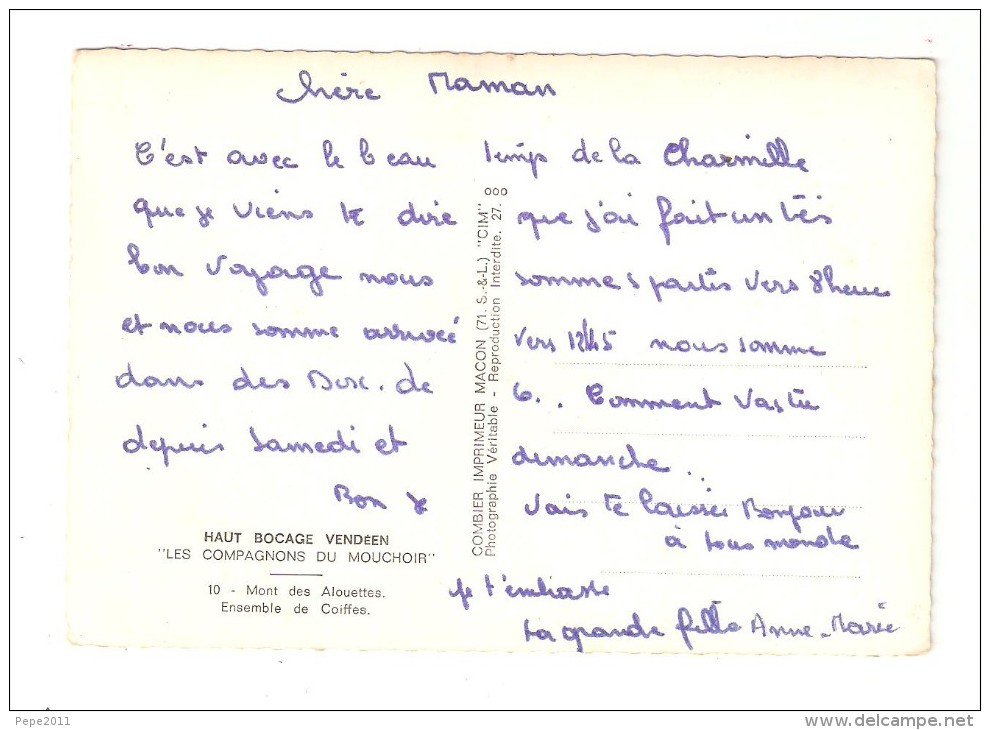 Chère Maman
C'est avec le beau temps de la Charmille
que je viens te dire que j'ai fait un très
bon voyage nous sommes partis vers 8heures
et nous somme arrivée vers 12h45 nous somme
dans des Box. de 6.. Comment vas tu
depuis samedi et dimanche..
Bon je vais te laisser Bonjour
à tous monde
je t'embrasse
ta grande fille Anne-Marie
HAUT BOCAGE VENDÉEN
"LES COMPAGNONS DU MOUCHOIR"
10 - Mont des Alouettes.
Ensemble de Coiffes.
COMBIER IMPRIMEUR MACON (71. S.-&-L.) "CIM" ooo
Photographie Véritable - Reproduction Interdite. 27.
Pepe2011
www.delcampe.net